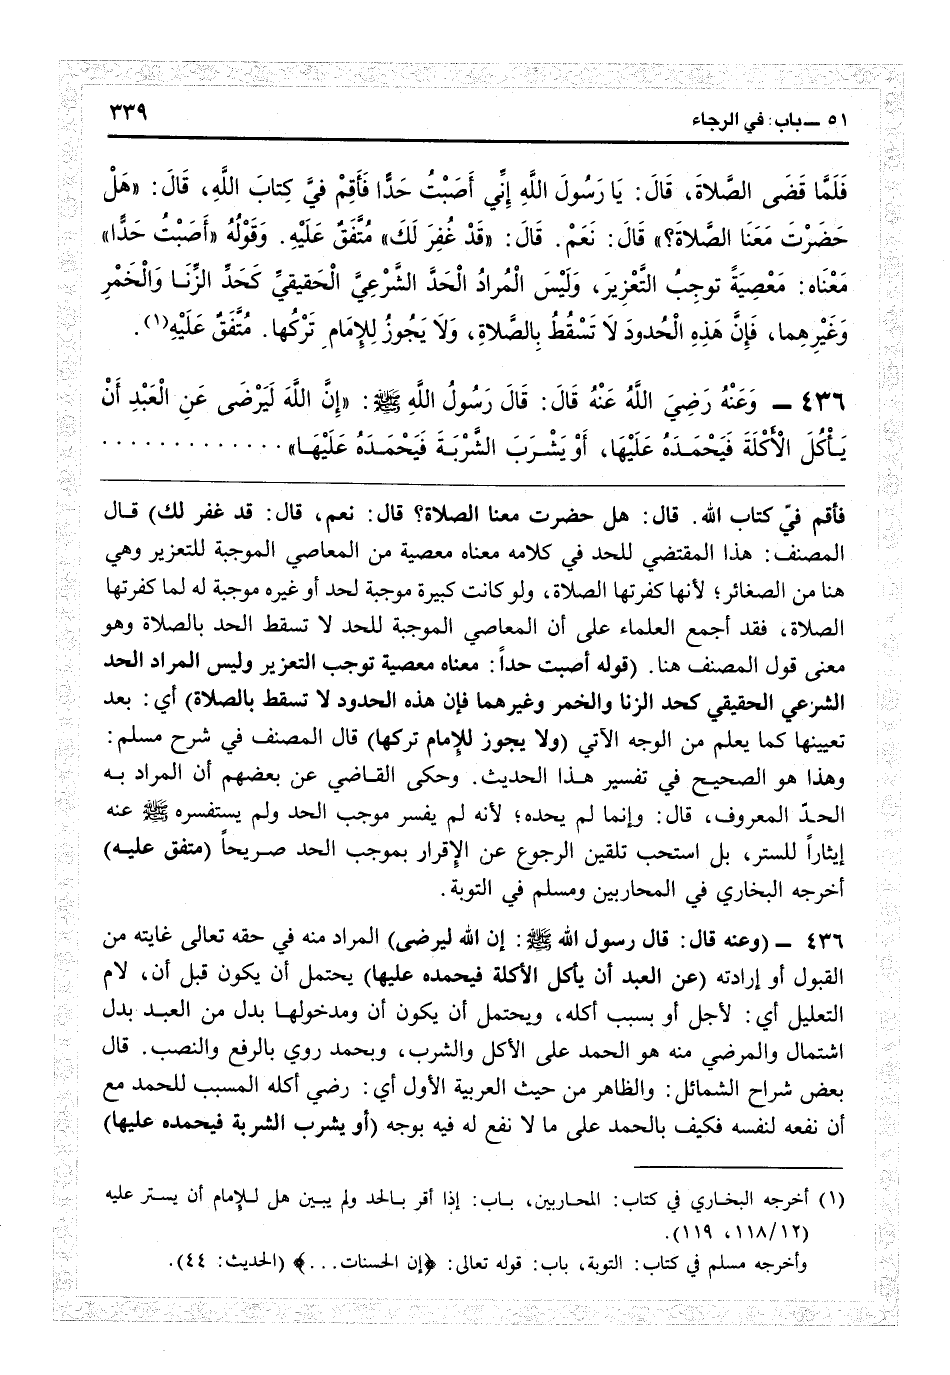 ٥١ ــ باب: في الرجاء ٣٣٩
فَلَمَّا قَضَى الصَّلاةَ، قَالَ: يَا رَسُولَ اللَّهِ إِنِّي أَصَبْتُ حَدًّا فَأَقِمْ فيَّ كِتابَ اللَّهِ، قَالَ: «هَلْ
حَضَرْتَ مَعَنَا الصَّلاةَ؟» قَالَ: نَعَمْ. قَالَ: «قَدْ غُفِرَ لَكَ» مُتَّفَقٌ عَلَيْهِ. وَقَوْلُهُ «أَصَبْتُ حَدًّا»
مَعْنَاه: مَعْصِيَةً توجِبُ التَّعْزِيرَ، وَلَيْسَ الْمُرادُ الْحَدَّ الشَّرْعِيَّ الْحَقِيقِيَّ كَحَدِّ الزِّنَا وَالْخَمْرِ
وَغَيْرِهِما، فَإِنَّ هَذِهِ الْحُدودَ لَا تَسْقُطُ بِالصَّلاةِ، وَلَا يَجُوزُ لِلإِمَامِ تَرْكُها. مُتَّفَقٌ عَلَيْهِ(١).
٤٣٦ ــ وَعَنْهُ رَضِيَ اللَّهُ عَنْهُ قَالَ: قَالَ رَسُولُ اللَّهِ ﷺ: «إِنَّ اللَّهَ لَيَرْضَى عَنِ الْعَبْدِ أَنْ
يَأْكُلَ الْأَكْلَةَ فَيَحْمَدُهُ عَلَيْهَا، أَوْ يَشْرَبَ الشَّرْبَةَ فَيَحْمَدُهُ عَلَيْهَا» . . . . . . . . . . . . .
فأقم فيّ كتاب الله. قال: هل حضرت معنا الصلاة؟ قال: نعم، قال: قد غفر لك) قال
المصنف: هذا المقتضي للحد في كلامه معناه معصية من المعاصي الموجبة للتعزير وهي
هنا من الصغائر؛ لأنها كفرتها الصلاة، ولو كانت كبيرة موجبة لحد أو غيره موجبة له لما كفرتها
الصلاة، فقد أجمع العلماء على أن المعاصي الموجبة للحد لا تسقط الحد بالصلاة وهو
معنى قول المصنف هنا. (قوله أصبت حداً: معناه معصية توجب التعزير وليس المراد الحد
الشرعي الحقيقي كحد الزنا والخمر وغيرهما فإن هذه الحدود لا تسقط بالصلاة) أي: بعد
تعيينها كما يعلم من الوجه الآتي (ولا يجوز للإمام تركها) قال المصنف في شرح مسلم:
وهذا هو الصحيح في تفسير هذا الحديث. وحكى القاضي عن بعضهم أن المراد به
الحدّ المعروف، قال: وإنما لم يحده؛ لأنه لم يفسر موجب الحد ولم يستفسره ﷺ عنه
إيثاراً للستر، بل استحب تلقين الرجوع عن الإقرار بموجب الحد صريحاً (متفق عليه)
أخرجه البخاري في المحاربين ومسلم في التوبة.
٤٣٦ ــ (وعنه قال: قال رسول الله ﷺ: إن الله ليرضى) المراد منه في حقه تعالى غايته من
القبول أو إرادته (عن العبد أن يأكل الأكلة فيحمده عليها) يحتمل أن يكون قبل أن، لام
التعليل أي: لأجل أو بسبب أكله، ويحتمل أن يكون أن ومدخولها بدل من العبد بدل
اشتمال والمرضي منه هو الحمد على الأكل والشرب، ويحمد روي بالرفع والنصب. قال
بعض شراح الشمائل: والظاهر من حيث العربية الأول أي: رضي أكله المسبب للحمد مع
أن نفعه لنفسه فكيف بالحمد على ما لا نفع له فيه بوجه (أو يشرب الشربة فيحمده عليها)
(١) أخرجه البخاري في كتاب: المحاربين، باب: إذا أقر بالحد ولم يبين هل للإمام أن يستر عليه
(١١٨/١٢، ١١٩).
وأخرجه مسلم في كتاب: التوبة، باب: قوله تعالى: ﴿إن الحسنات...﴾ (الحديث: ٤٤).